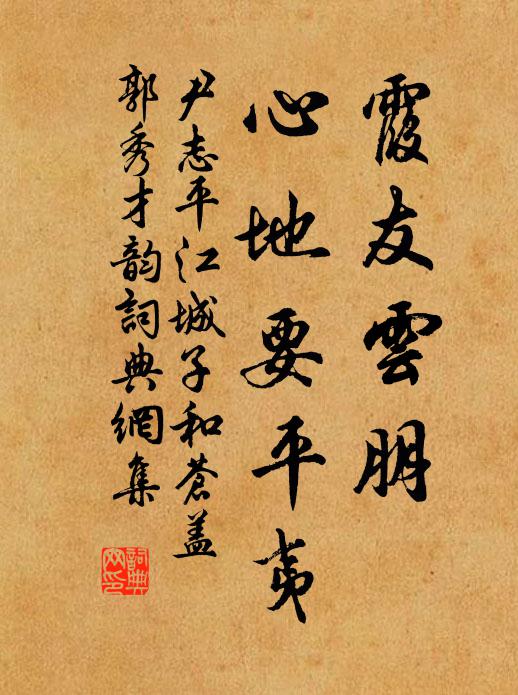 霞友雲朋
心地要平夷
尹志平江城子和蒼盖
郭秀才韵詞典網集
詞典网印